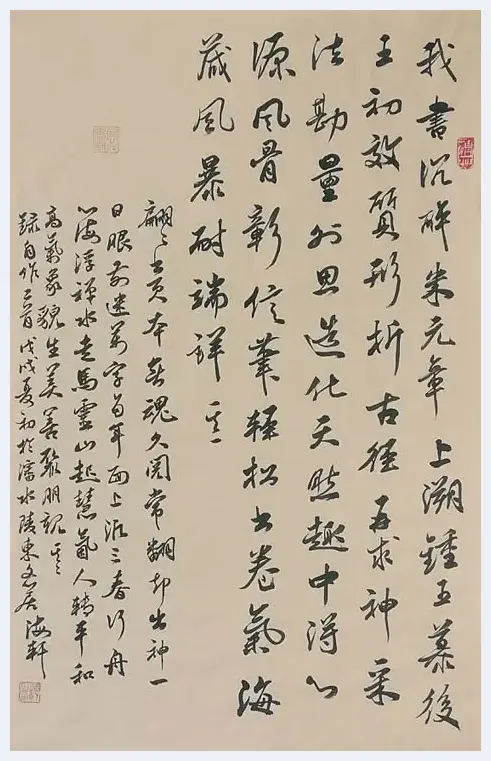 我書沉醉米元章上溯鍾王慕後
王初效質形折古徑再求神采
法勘量外思造化天然趣中得心
源風骨彰信筆輕松書卷氣海
藏風暴耐端詳 其一
翩翩書頁本無魂久閱常翻却出神一
日眼前迷萬字百年面上泛三春行舟
心海浮禪水走馬靈山起慧氤人轉平和
高氣象貌生美善聚朋親 其二
錄自作二首戊戌夏初於濡水陵東文居海軒